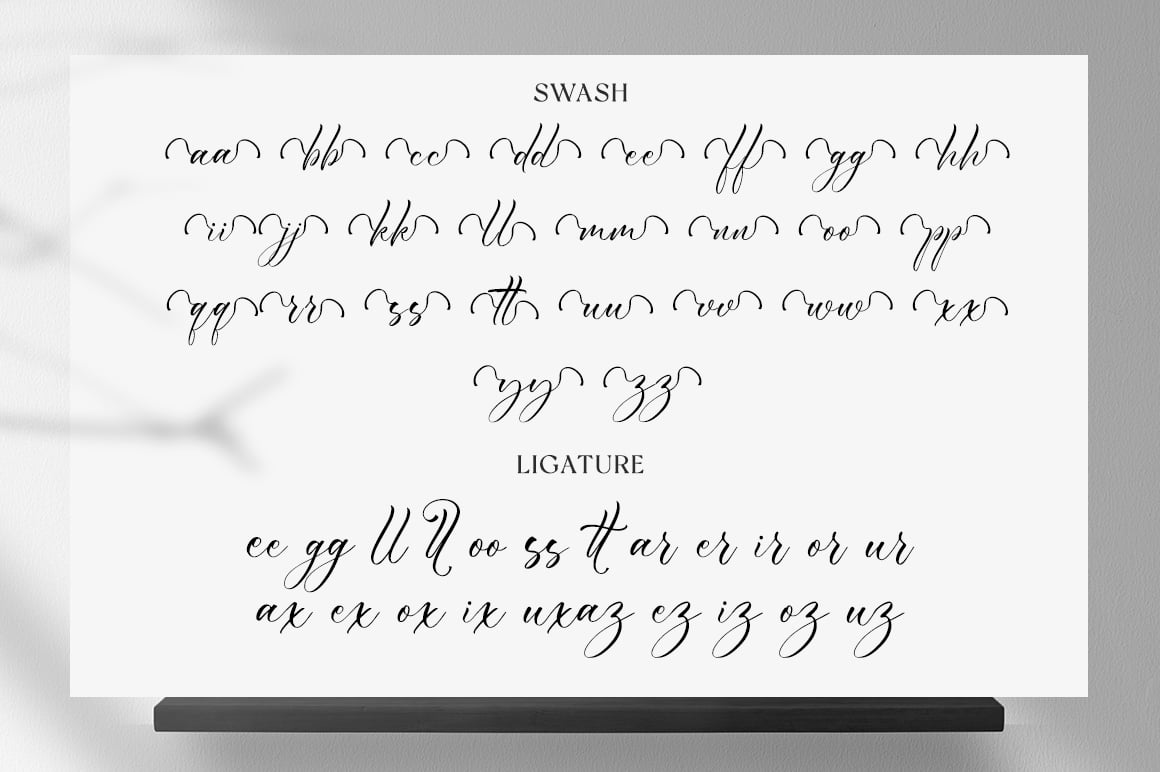 SWASH
aa bb cc dd ee ff gg hh
ii jj kk ll mm nn oo pp
qq rr ss tt uu vv ww xx
yy zz
LIGATURE
ee gg ll ll oo ss tt ar er ir or ur
ax ex ox ix uxaz ez iz oz uz